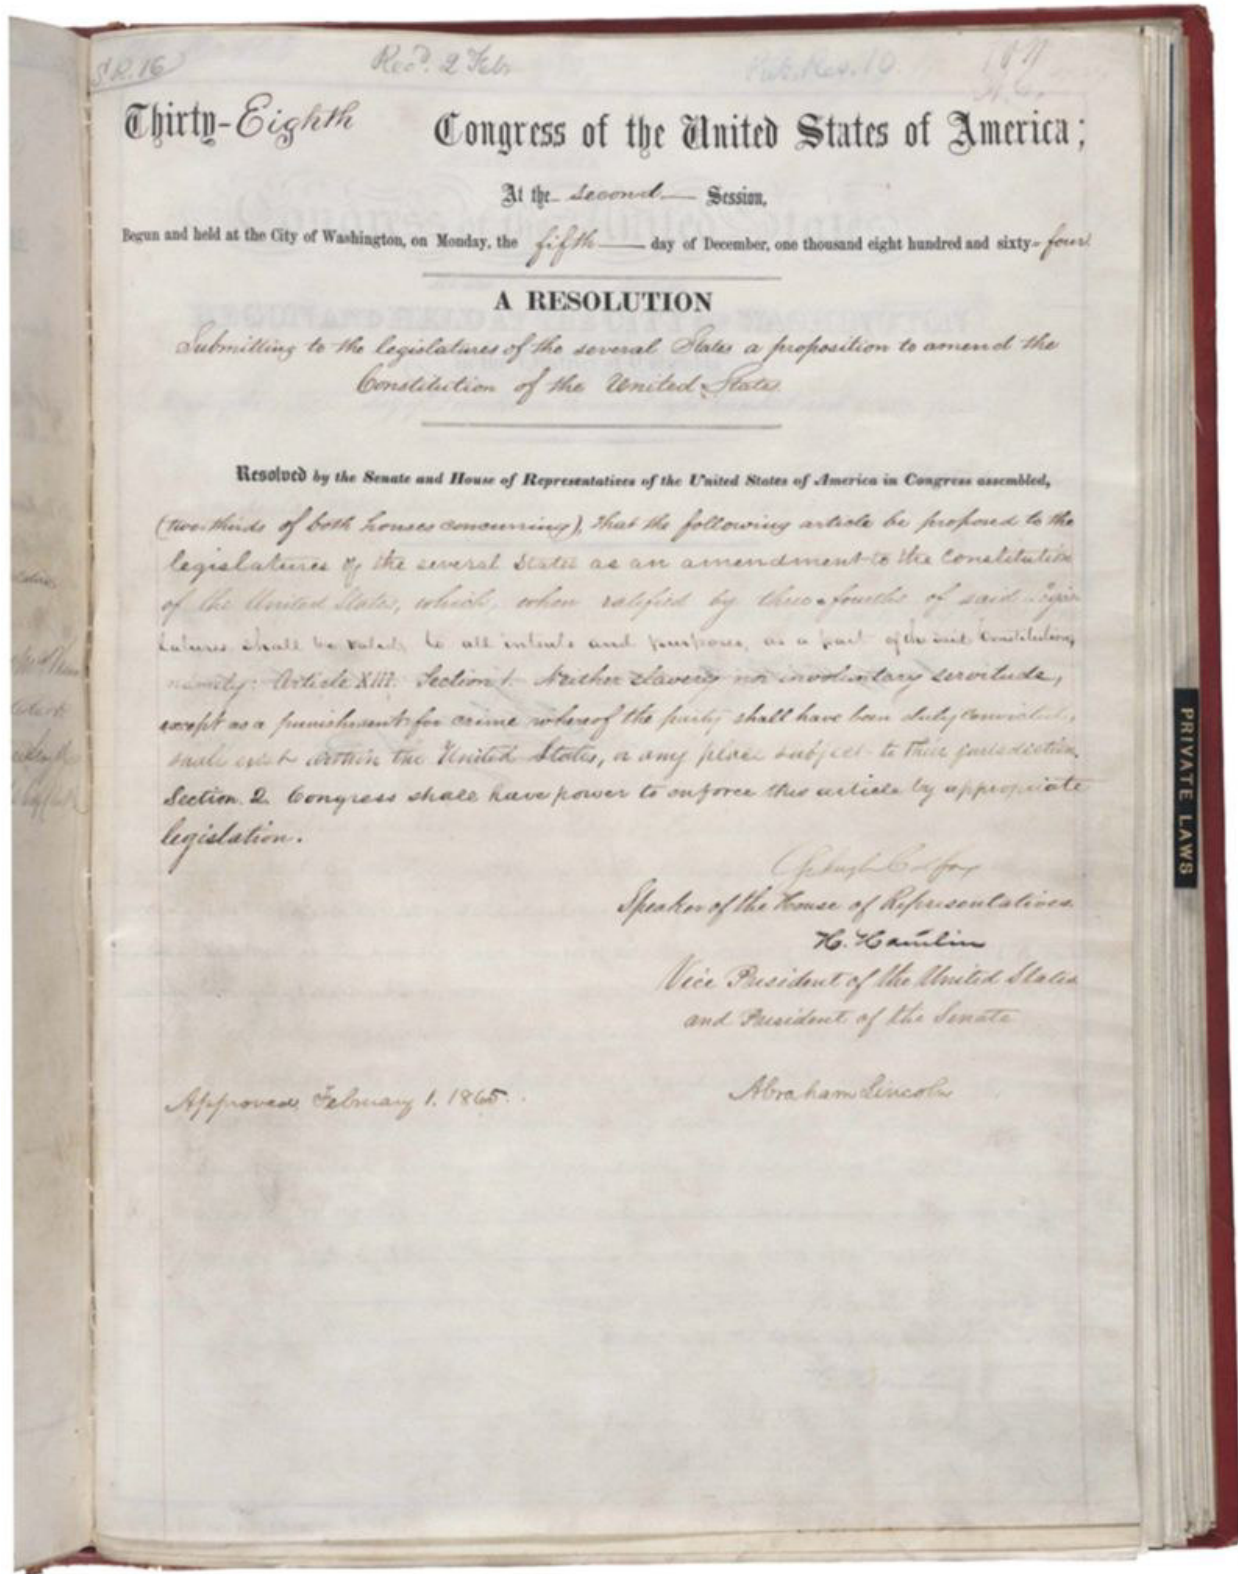 S.R. 16
Rec'd. 2 Feb
Pub. Res. 10.
Thirty-Eighth Congress of the United States of America;
At the second Session,
Begun and held at the City of Washington, on Monday, the fifth day of December, one thousand eight hundred and sixty-four.
A RESOLUTION
Submitting to the legislatures of the several States a proposition to amend the
Constitution of the United States.
Resolved by the Senate and House of Representatives of the United States of America in Congress assembled,
(two-thirds of both houses concurring), That the following article be proposed to the
legislatures of the several States as an amendment to the Constitution
of the United States, which, when ratified by three-fourths of said Legis-
latures shall be valid, to all intents and purposes, as a part of the said Constitution,
namely: Article XIII. Section 1. Neither slavery nor involuntary servitude,
except as a punishment for crime whereof the party shall have been duly convicted,
shall exist within the United States, or any place subject to their jurisdiction.
Section. 2. Congress shall have power to enforce this article by appropriate
legislation.
Schuyler Colfax
Speaker of the House of Representatives.
H. Hamlin
Vice President of the United States
and President of the Senate
Approved, February 1. 1865.
Abraham Lincoln
PRIVATE LAWS